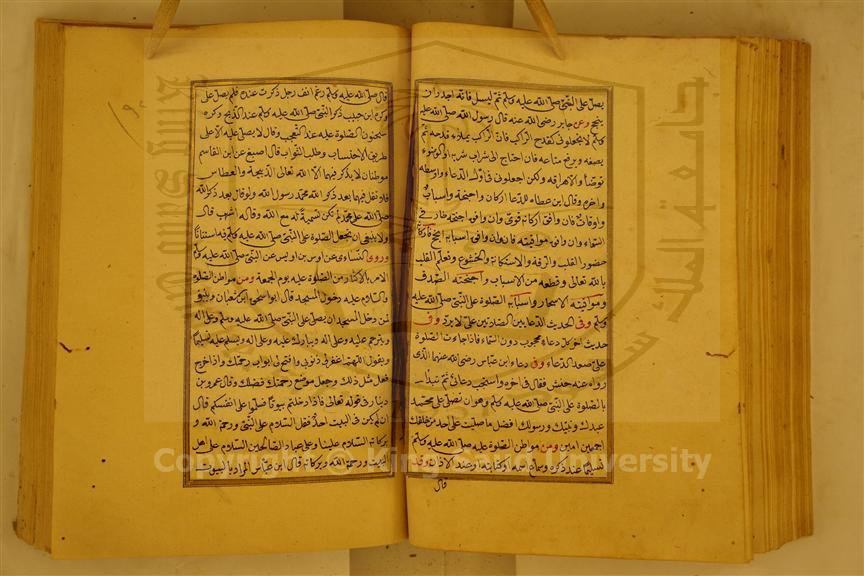 يصل على النبي صلى الله عليه وسلم ثم ليسل فانه اجدر ان
ينجح وعن جابر رضى الله عنه قال رسول الله صلى الله عليه
وسلم لا تجعلونى كقدح الراكب فان الراكب يملاء قدحه ثم
يضعه ويرفع متاعه فان احتاج الى شراب شربه او الوضوء
توضأ والا هراقه ولكن اجعلونى فى اول الدعاء واوسطه
واخره وقال ابن عطاء للدعا اركان واجنحة واسباب
واوقات فان وافق اركانه قوى وان وافق اجنحته طار فى
السماء وان وافق مواقيته فاز وان وافق اسبابه انجح فاركانه
حضور القلب والرقة والاستكانة والخشوع وتعلق القلب
بالله تعالى وقطعه من الاسباب واجنحته الصدق
ومواقيته الاسحار واسبابه الصلوة على النبي صلى الله عليه
وسلم وفى الحديث الدعا بين الصلاتين على لا يرد وفى
حديث اخر كل دعاء محجوب دون السماء فاذا جاءت الصلوة
على صعد الدعاء وفى دعاء ابن عباس رضى الله عنهما الذى
رواه عنه حنش فقال فى اخره واستجب دعائى ثم تبدأ
بالصلوة على النبي صلى الله عليه وسلم وهو ان تصلى على محمد
عبدك ونبيك ورسولك افضل ما صليت على احد من خلقك
اجمعين امين ومن مواطن الصلوة عليه صلى الله عليه وسلم
تسليما عند ذكره وسماع اسمه او كتابته او عند الاذان وقد
قال
قال صلى الله عليه وسلم رغم انف رجل ذكرت عنده فلم يصل على
وكره ابن حبيب ذكر النبي صلى الله عليه وسلم عند الذبح وكره
سحنون الصلوة عليه عند التعجب وقال لا يصل عليه الا على
طريق الاحتساب وطلب الثواب قال اصبغ عن ابن القاسم
موطنان لا يذكر فيهما الا الله تعالى الذبيحة والعطاس
فلا تقل فيهما بعد ذكر الله محمد رسول الله ولو قال بعد ذكر الله
صلى الله على محمد لم تكن تسمية له مع الله وقاله اشهب قال
ولا ينبغى ان تجعل الصلوة على النبي صلى الله عليه وسلم فيه استنانا
وروى النساءى عن اوس بن اويس عن النبي صلى الله عليه وسلم
الامر بالاكثار من الصلوة عليه يوم الجمعة ومن مواطن الصلوة
والسلام عليه دخول المسجد قال ابو اسحق ابن شعبان وينبغى
لمن دخل المسجد ان يصل على النبي صلى الله عليه وسلم وعلى اله
ويترحم عليه وعلى اله ويبارك عليه وعلى اله ويسلم عليه تسليما
ويقول اللهم اغفر لى ذنوبى وافتح لى ابواب رحمتك واذا خرج
فعل مثل ذلك وجعل موضع رحمتك فضلك وقال عمرو بن
دينار فى قوله تعالى فاذا دخلتم بيوتا فسلموا على انفسكم قال
ان لم يكن فى البيت احد فقل السلام على النبي ورحمة الله و
بركاته السلام علينا وعلى عباد الله الصالحين السلام على اهل
البيت ورحمة الله وبركاته قال ابن عباس المراد بالبيوت
Copyright © King Saud University
جامعة الملك سعود
King Saud University